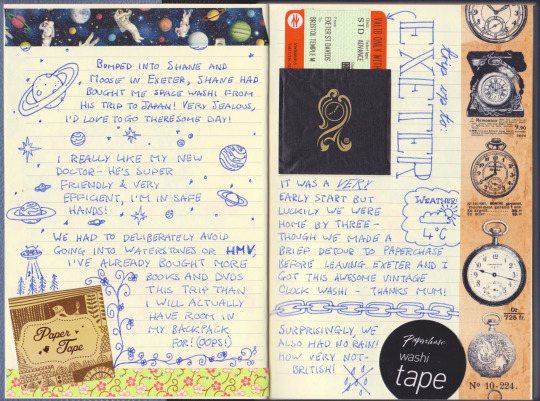 BUMPED INTO SHANE AND
MOOSE IN EXETER, SHANE HAD
BOUGHT ME SPACE WASHI FROM
HIS TRIP TO JAPAN! VERY JEALOUS,
I'D LOVE TO GO THERE SOME DAY!
I REALLY LIKE MY NEW
DOCTOR - HE'S SUPER
FRIENDLY & VERY
EFFICIENT, I'M IN SAFE
HANDS!
WE HAD TO DELIBERATELY AVOID
GOING INTO WATERSTONES OR HMV,
I'VE ALREADY BOUGHT MORE
BOOKS AND DVDS
THIS TRIP THAN
I WILL ACTUALLY
HAVE ROOM IN
MY BACKPACK
FOR! (OOPS!)
Paper
Tape
VALID ONLY WITH
STD ADVANCE
EXETER ST DAVIDS
BRISTOL TEMPLE M
trip up to:
EXETER
IT WAS A VERY
EARLY START BUT
LUCKILY WE WERE
HOME BY THREE -
THOUGH WE MADE A
BRIEF DETOUR TO PAPERCHASE
BEFORE LEAVING EXETER AND I
GOT THIS AWESOME VINTAGE
CLOCK WASHI - THANKS MUM!
WEATHER:
4°C
SURPRISINGLY, WE
ALSO HAD NO RAIN!
HOW VERY NOT-
BRITISH!
Paperchase
washi
tape
725 fr.
No 10-224.